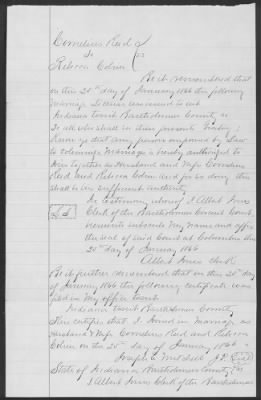 Cornelius Reid
To
Rebecca Edwin
Be it remembered that
on the 25th day of January 1866 the following
Marriage License was issued to wit
Indiana to wit Bartholomew County ss
To all who shall see these presents Greeting
Know ye that any person empowered by Law
to solemnize Marriage is hereby authorized to
Join together as Husband and Wife Cornelius
Reid and Rebecca Edwin and for so doing this
shall be his sufficient authority
In testimony whereof I Albert Jones
L.S. Clerk of the Bartholomew Circuit Court
hereunto subscribe my name and affix
the seal of said Court at Columbus this
25th day of January 1866
Albert Jones Clerk
Be it further remembered that on the 25th day
of January 1866 the following certificate was
filed in my office to wit
Indiana to wit Bartholomew County
This certifies that I joined in marriage as
Husband & Wife Cornelius Reid and Rebecca
Edwin on the 25th day of January 1866
Joseph J.P. Seal
State of Indiana Bartholomew County ss
I Albert Jones Clerk of the Bartholomew